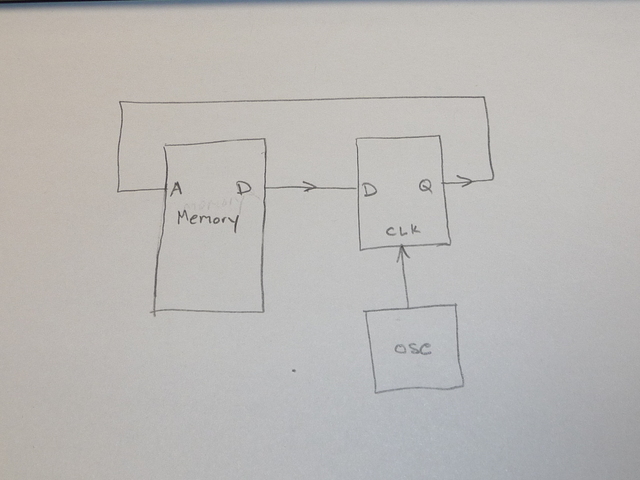 A D
Memory
D Q
CLK
OSC